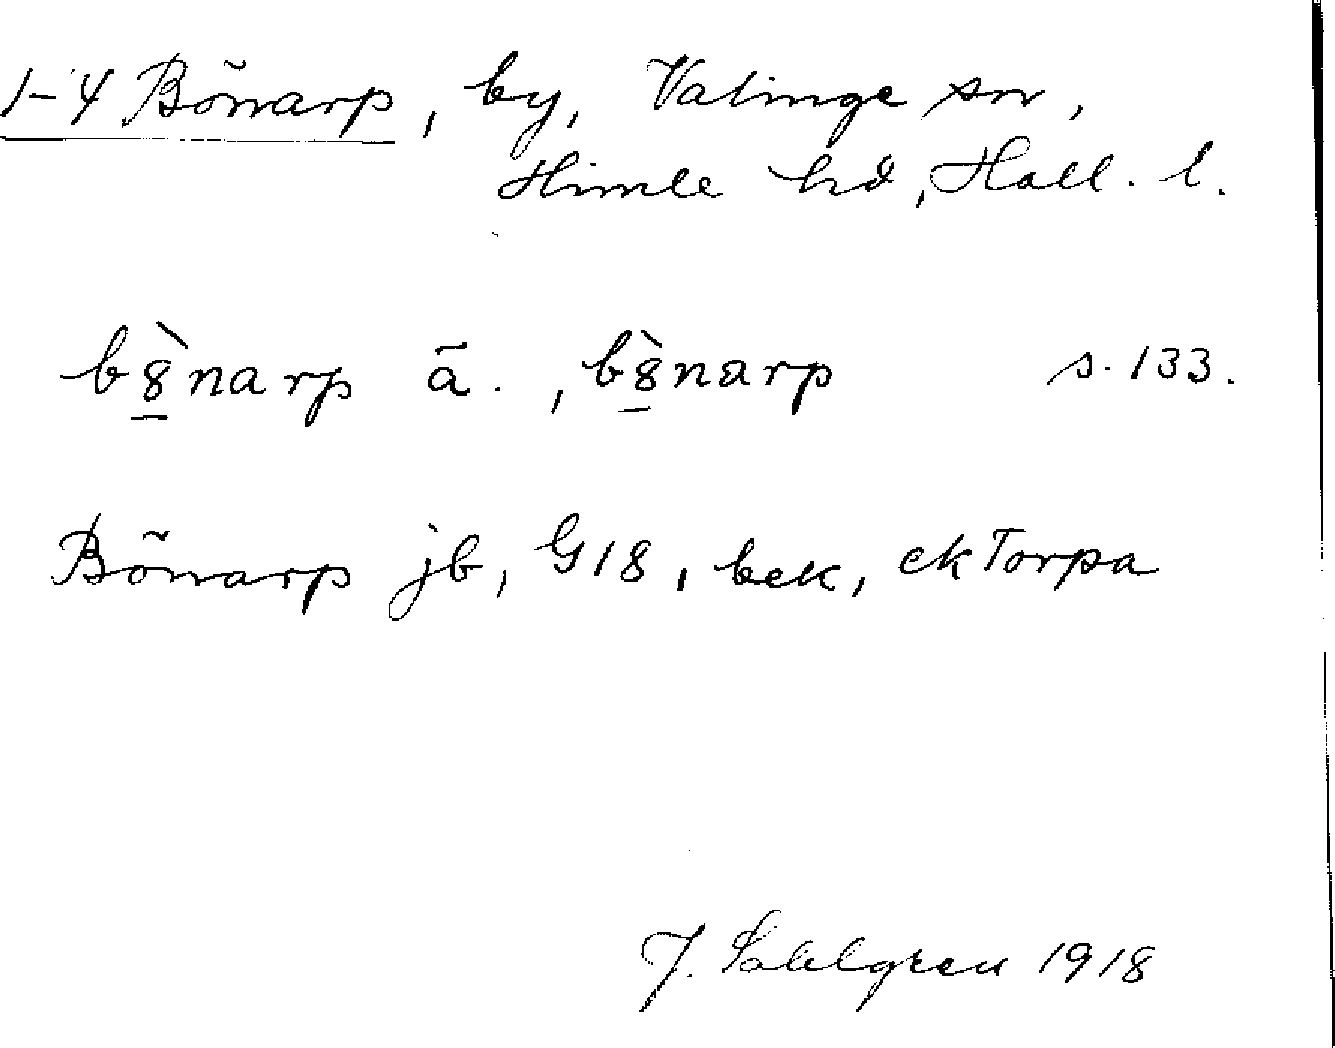 1-4 Bönarp, by, Valinge sn,
Himle hd, Hall. l.
b８̀narp ā., b８̀narp s. 133.
Bönarp jb, G18, bek, ekTorpa
J. Sahlgren 1918